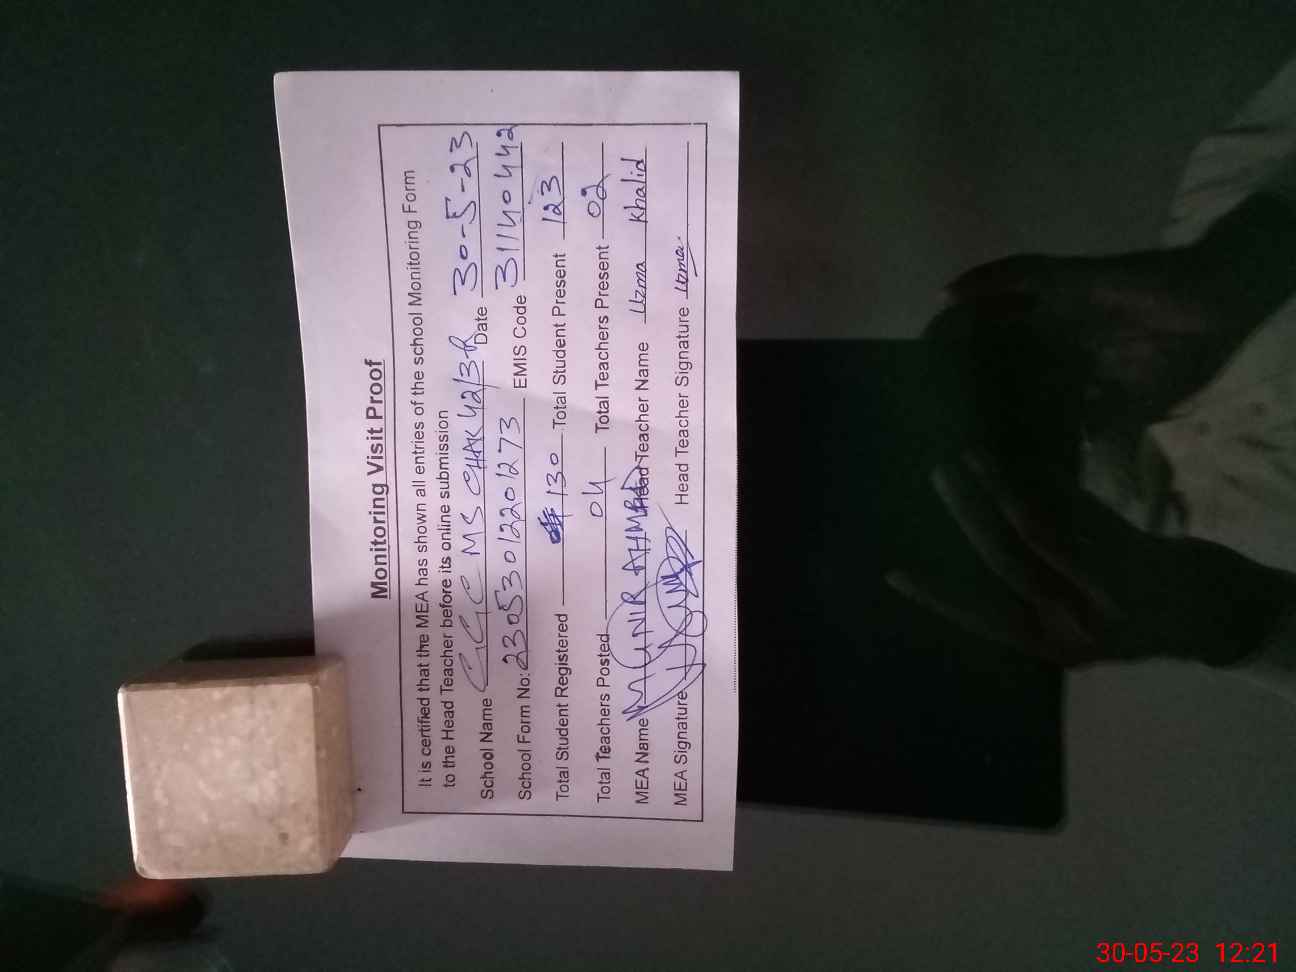 Monitoring Visit Proof
It is certified that the MEA has shown all entries of the school Monitoring Form
to the Head Teacher before its online submission
School Name GGC MS CHAK 42/3R Date 30-5-23
School Form No: 23053012201273 EMIS Code 31140442
Total Student Registered 130 Total Student Present 123
Total Teachers Posted 04 Total Teachers Present 02
MEA Name MUNIR AHMAD Head Teacher Name Uzma Khalid
MEA Signature Head Teacher Signature Uzma.
30-05-23 12:21